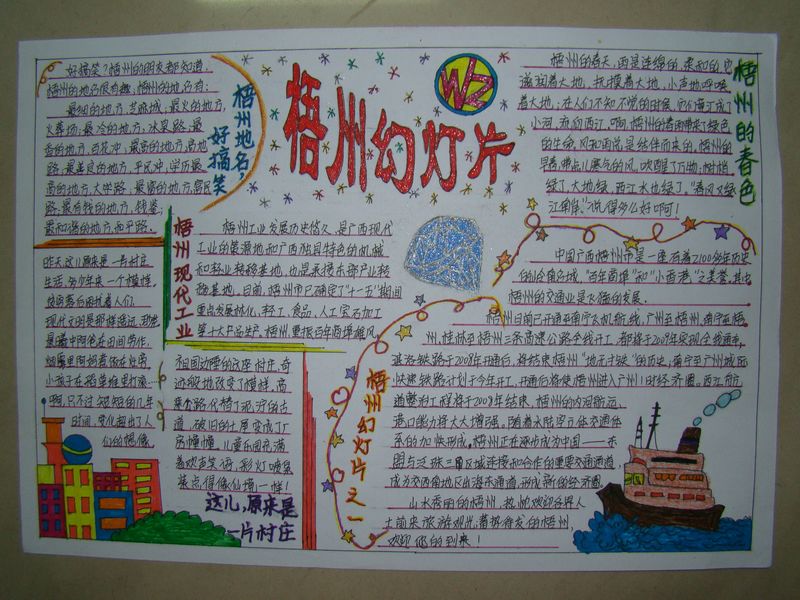 梧州幻灯片
WZ
梧州地名，
好搞笑
好搞笑？梧州的朋友都知道，
梧州的地名很有趣，梧州的地名有：
最细的地方，芝麻城，最火的地方，
火葬场，最冷的地方，冰泉路，最
香的地方，百花冲，最高的地方，高地
路，最美良的地方，平民冲，学历最
高的地方，大学路，最富的地方，富民
路，最有钱的地方，钱鉴，
最和谐的地方，和平路。
梧州的春色
梧州的春天，雨是连绵的，柔和的，它
滋润着大地，抚摸着大地，小声地呼唤
着大地，在人们不知不觉的时候，它们汇成了
小河，流向西江，啊，梧州的春雨带来了绿色
的生命，风和雨总是结伴而来的，梧州的
春风带点儿寒气的风，吹醒了万物，树梢
绿了，大地绿，西江水也绿了。“春风又绿
江南岸。”说得多么好啊！
梧州现代工业
梧州工业发展历史悠久，是广西现代
工业的发源地和广西独具特色的机械
和轻业转移基地，也是承接东部产业转
移基地。目前，梧州市已确定了“十一五”期间
重点发展林化、轻工、食品、人工宝石加工
等十大产品生产，梧州，重振百年商埠雄风。
中国广西梧州市是一座有着2100多年历史
的岭南名城，“百年商埠”和“小香港”之美誉，其中
梧州的交通业是飞猛的发展。
梧州目前已开通至南宁飞机航线，广州至梧州、南宁至梧
州、桂林至梧州三条高速公路全线开工，都将于2009年实现全线通车，
洛湛铁路于2008年开通后，将结束梧州“地无寸铁”的历史，南宁至广州城际
快速铁路计划于今年开工，开通后将使梧州进入广州1时经济圈，西江航
道整治工程将于2009年结束，梧州的内河航运、
港口能力将大大增强。随着水陆空立体交通体
系的加快形成，梧州正在逐步成为中国——东
盟与泛珠三角区域连接和合作的重要交通通道，
成为交西南地区出海东通道，形成新的经济圈。
山水秀丽的梧州，热忱欢迎各界人
士前来旅游观光，蓄势待发的梧州，
欢迎您的到来！
梧州幻灯片之一
昨天，这儿原来是一片村庄
生活，多少年来一个模样，
现代文明是那样遥远，恐龙
是着中阿爸在田间劳作，
小孩子在稻草堆里打滚…
啊，只不过短短的几年
时间，变化超出了人
们的想像。
祖国边陲的这座村庄，奇
迹般地改变了模样，高
来小路代替了泥泞的古
道，破旧的土屋变成了厂
房幢幢，儿童乐园充满
着欢声笑语，彩灯喷泉
景点、俱像仙境一样！
这儿，原来是
一片村庄